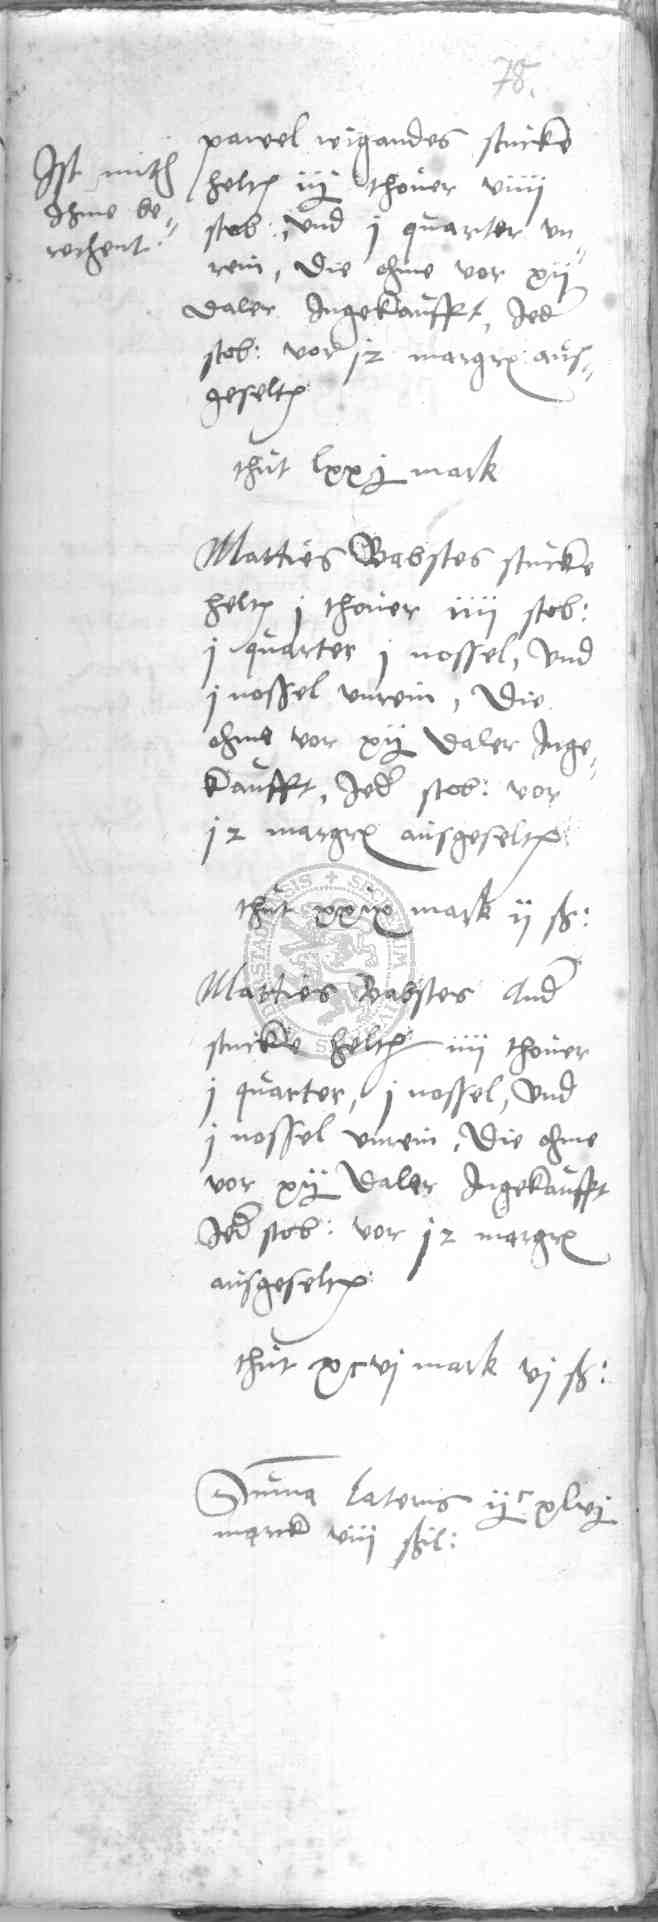 78.
Ist mith
Ihme be-
rechent.
pawel wigandes stucke
helt iij thover viiii
stob: vnd j quarter vn-
rein, die ohme vor xij
daler Ingekaufft, Jed
stob: vor jz margr aus-
geselt
thut lxxj mark
Matties Babstes stucke
helt j thover iiii stob:
j quarter j nossel, vnd
j nossel vnrein, Die
ohme vor xij daler Inge-
kaufft, Jed stob: vor
jz margr ausgeselt
thut mark ij ß:
Matties Babstes And
stucke helt iiii thover
j quarter, j nossel, vnd
j nossel vnrein, Die ohme
vor xij daler Ingekaufft
Jed stob: vor jz margr
ausgeselt
thut xcvj mark vj ß:
Suma Lateris ijc xlvj
marck viii ßil: